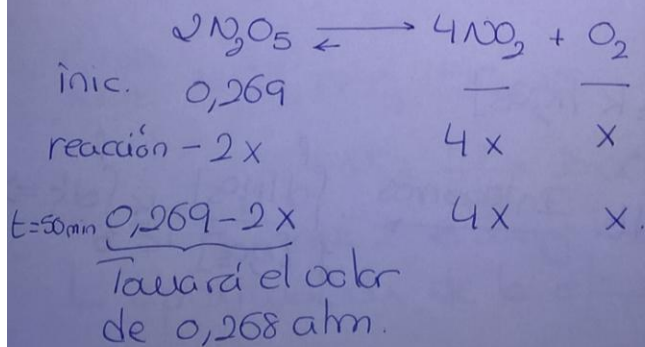 2N₂O₅ ⇄ 4NO₂ + O₂
inic. 0,269 — —
reacción - 2x 4x x
t=50min 0,269-2x 4x x.
Tomará el valor
de 0,268 atm.